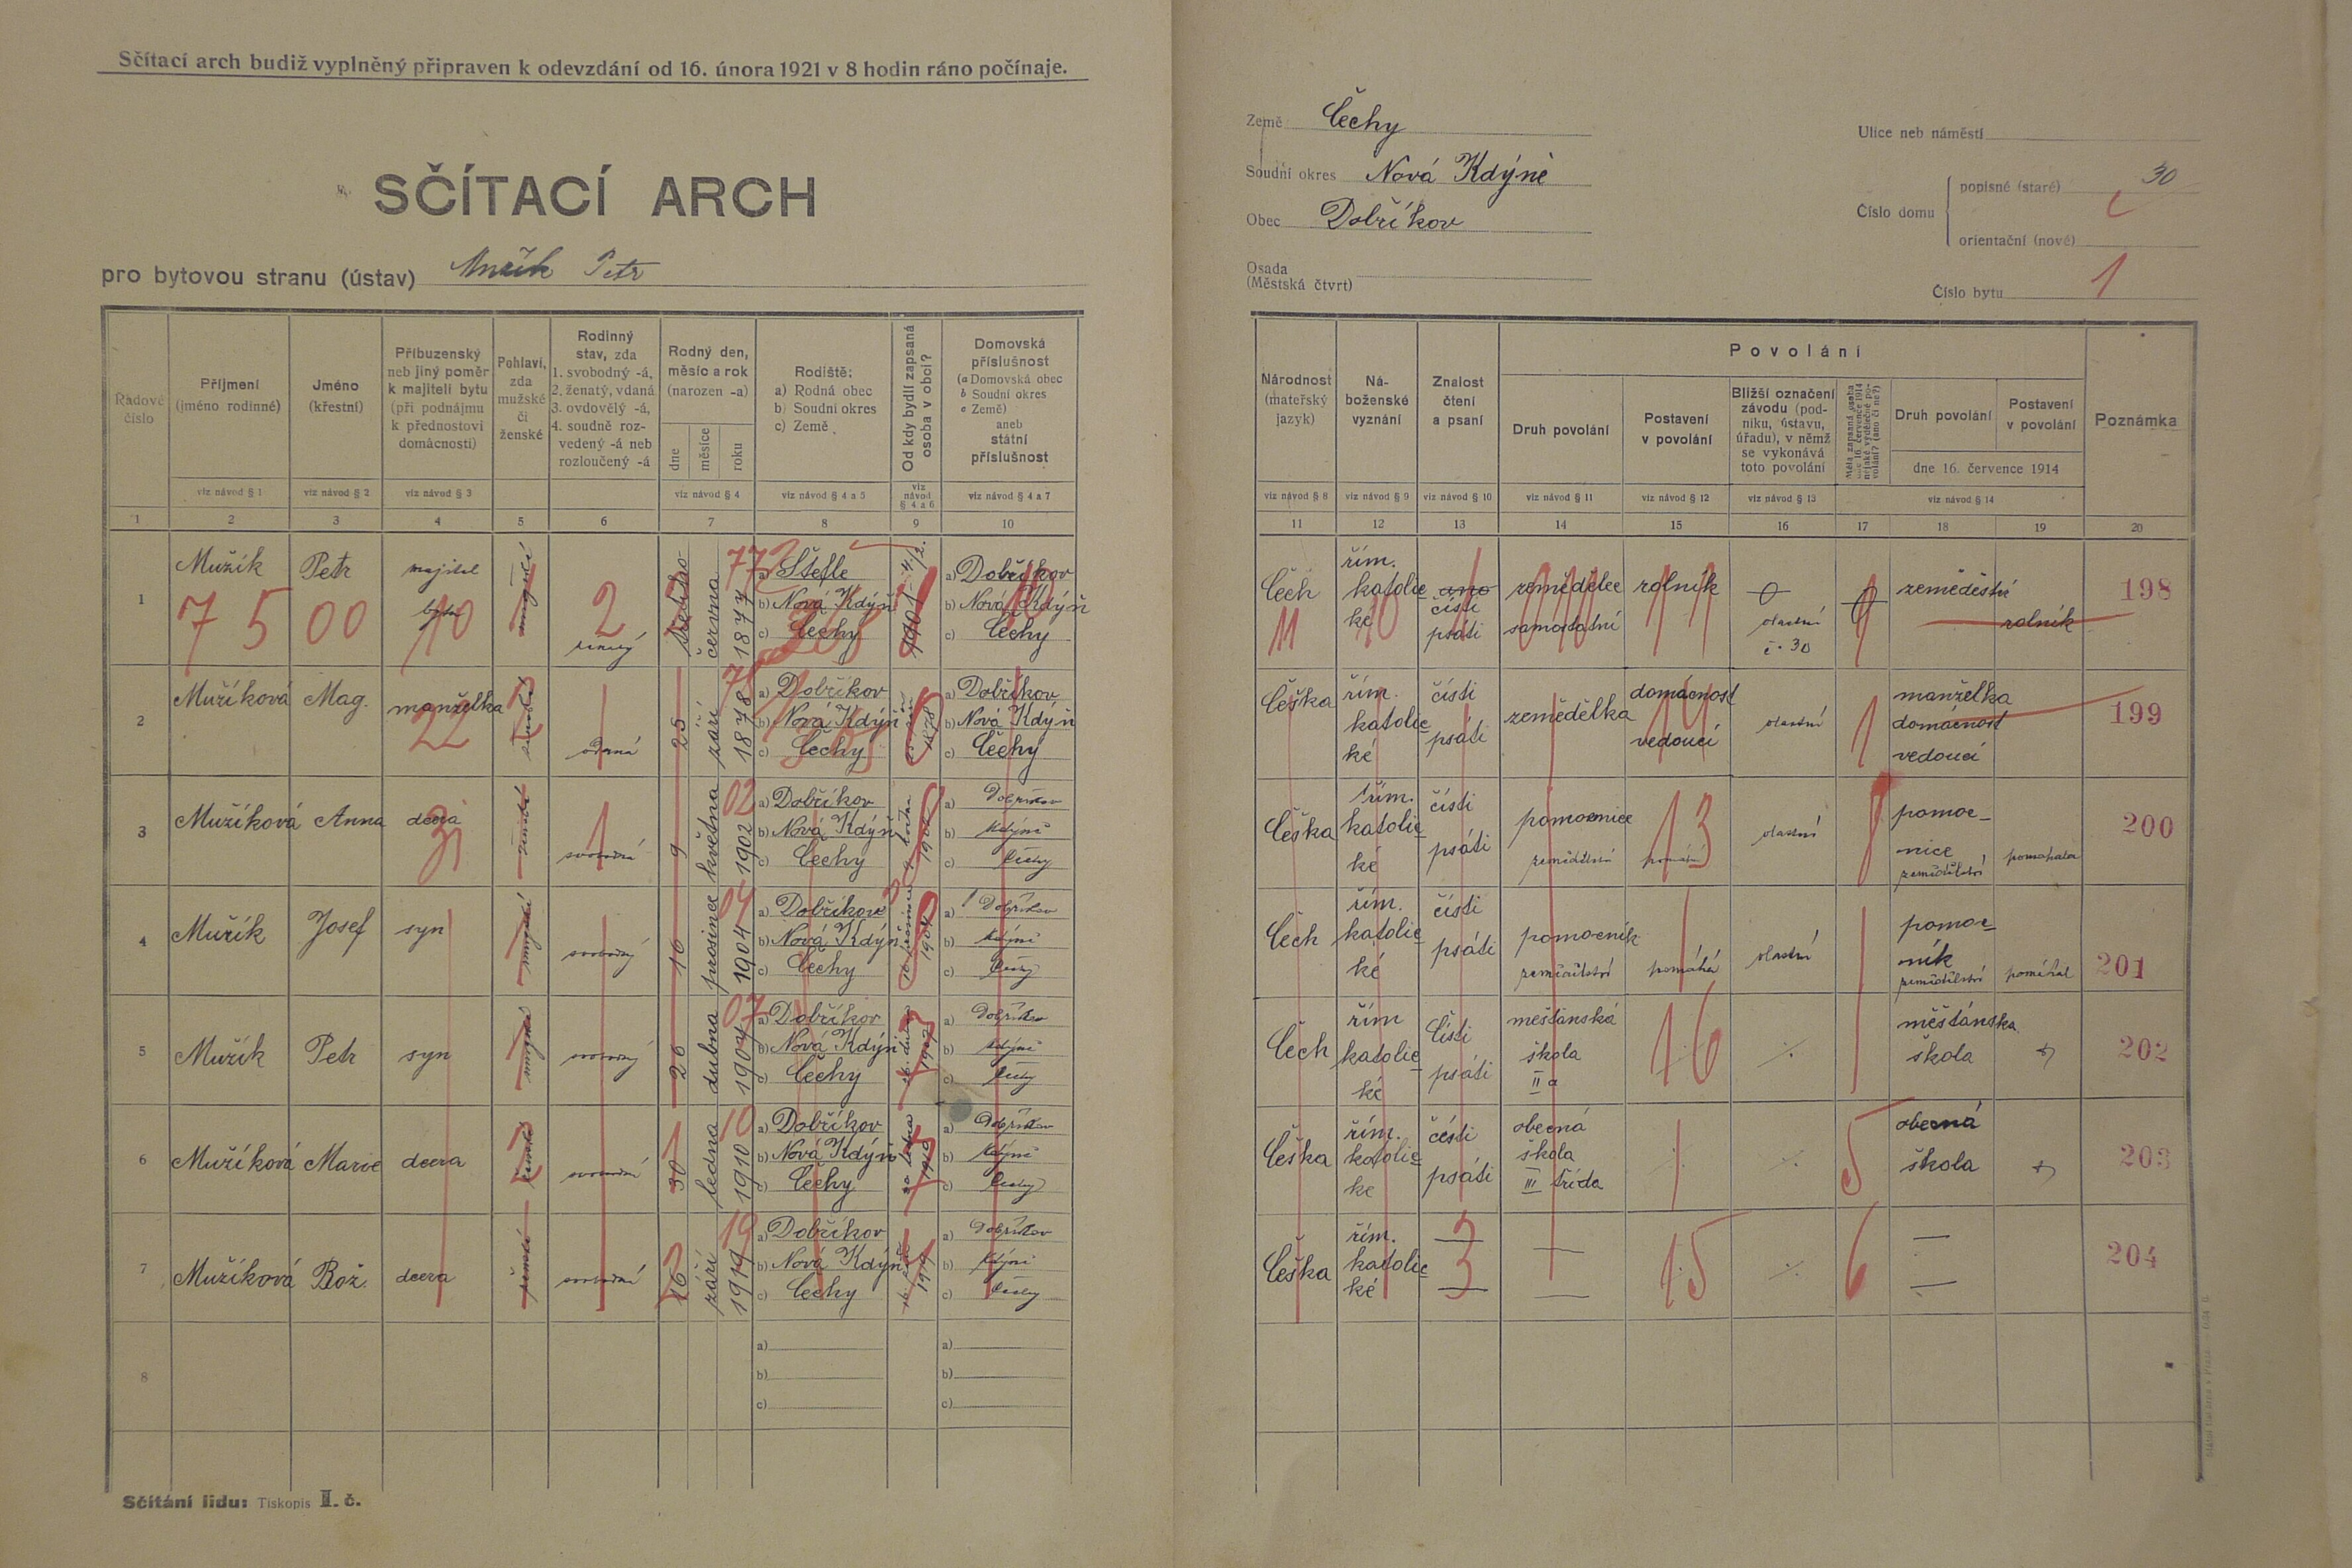 Sčítací arch budiž vyplněný připraven k odevzdání od 16. února 1921 v 8 hodin ráno počínaje.
SČÍTACÍ ARCH
pro bytovou stranu (ústav) Mužík Petr
Řadové číslo
Příjmení
(jméno rodinné)
Jméno
(křestní)
Příbuzenský
neb jiný poměr
k majiteli bytu
(při podnájmu
k přednostovi
domácnosti)
Pohlaví,
zda
mužské
či
ženské
Rodinný
stav, zda
1. svobodný -á,
2. ženatý, vdaná
3. ovdovělý -á,
4. soudně roz-
vedený -á neb
rozloučený -á
Rodný den,
měsíc a rok
(narozen -a)
dne
měsíce
roku
Rodiště:
a) Rodná obec
b) Soudní okres
c) Země
Od kdy bydlí zapsaná
osoba v obci?
Domovská
příslušnost
(a Domovská obec
b Soudní okres
c Země)
aneb
státní
příslušnost
viz návod § 1
viz návod § 2
viz návod § 3
viz návod § 4
viz návod § 4 a 5
viz návod § 4 a 6
viz návod § 4 a 7
1 2 3 4 5 6 7 8 9 10
1 Mužík Petr majitel bytu mužské 2 ženatý června 1877 77
7 5 00 10
a) Štefle
b) Nová Kdýň
c) Čechy
a) Dobříkov
b) Nová Kdýň
c) Čechy
2 Mužíková Mag. manželka 22 vdaná 25 září 1878
a) Dobříkov
b) Nová Kdýň
c) Čechy
a) Dobříkov
b) Nová Kdýň
c) Čechy
3 Mužíková Anna dcera 31 svobodná 9 května 1902 02
a) Dobříkov
b) Nová Kdýň
c) Čechy
a) Dobříkov
b) Kdýně
c) Čechy
4 Mužík Josef syn mužské svobodný 16 prosince 1904 04
a) Dobříkov
b) Nová Kdýň
c) Čechy
a) Dobříkov
b) Kdýně
c) Čechy
5 Mužík Petr syn mužské svobodný 26 dubna 1907 07
a) Dobříkov
b) Nová Kdýň
c) Čechy
a) Dobříkov
b) Kdýně
c) Čechy
6 Mužíková Marie dcera ženské svobodná 30 ledna 1910 10
a) Dobříkov
b) Nová Kdýň
c) Čechy
a) Dobříkov
b) Kdýně
c) Čechy
7 Mužíková Bož. dcera ženské svobodná 16 září 1919 19
a) Dobříkov
b) Nová Kdýň
c) Čechy
a) Dobříkov
b) Kdýně
c) Čechy
8
a)
b)
c)
a)
b)
c)
Sčítání lidu: Tiskopis II. č.
Země Čechy
Soudní okres Nová Kdýně
Obec Dobříkov
Osada
(Městská čtvrt)
Ulice neb náměstí
Číslo domu
popisné (staré) 30
orientační (nové)
Číslo bytu 1
Národnost
(mateřský
jazyk)
Ná-
boženské
vyznání
Znalost
čtení
a psaní
Povolání
Druh povolání
Postavení
v povolání
Bližší označení
závodu (pod-
niku, ústavu,
úřadu), v němž
se vykonává
toto povolání
Měla zapsaná osoba
dne 16. července 1914
nějaké výdělečné po-
volání? (ano či ne?)
Druh povolání
Postavení
v povolání
dne 16. července 1914
Poznámka
viz návod § 8
viz návod § 9
viz návod § 10
viz návod § 11
viz návod § 12
viz návod § 13
viz návod § 14
11 12 13 14 15 16 17 18 19 20
Čech
11
řím.
katolic
ké
ano
čísti
psáti
zemědělec
samostatní
rolník
vlastní
č. 30
zemědělství
rolník
198
Češka
řím.
katolic
ké
čísti
psáti
zemědělka
domácnost
vedoucí
vlastní
manželka
domácnost
vedoucí
199
Češka
řím.
katolic
ké
čísti
psáti
pomocnice
zemědělství
13
vlastní
pomoc-
nice
zemědělství
pomáhala
200
Čech
řím.
katolic
ké
čísti
psáti
pomocník
zemědělství
pomáhá
vlastní
pomoc-
ník
zemědělství
pomáhal
201
Čech
řím
katolic
ké
čísti
psáti
mešťanská
škola
II a
16
měšťanska
škola
202
Češka
řím.
katolic
ke
čésti
psáti
obecná
škola
III třída
5
obecná
škola
203
Češka
řím.
katolic
ké
3
15
6
204